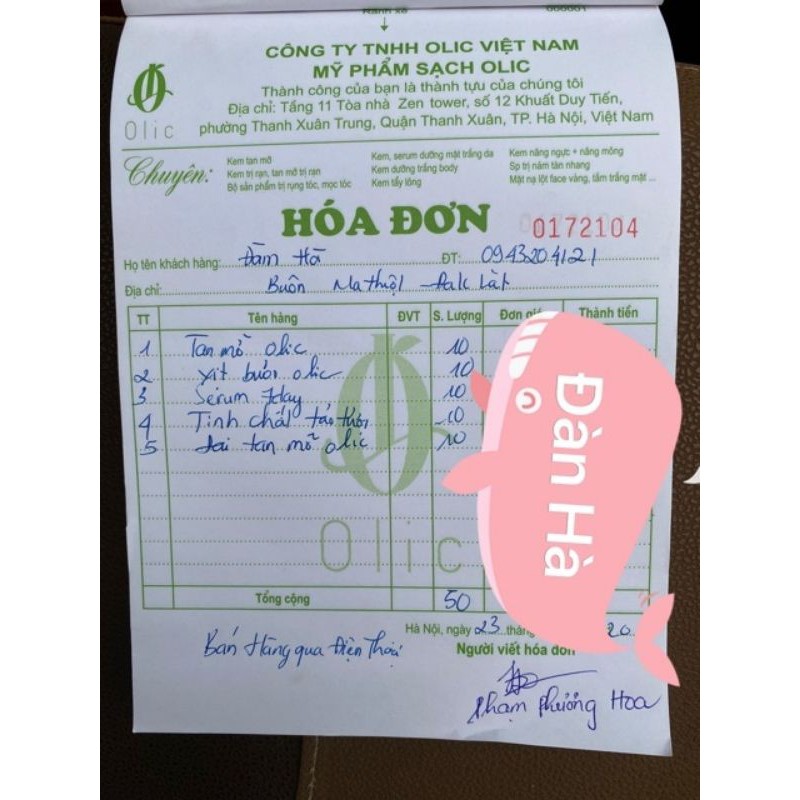 CÔNG TY TNHH OLIC VIỆT NAM
MỸ PHẨM SẠCH OLIC
Thành công của bạn là thành tựu của chúng tôi
Địa chỉ: Tầng 11 Tòa nhà Zen tower, số 12 Khuất Duy Tiến,
phường Thanh Xuân Trung, Quận Thanh Xuân, TP. Hà Nội, Việt Nam
Olic
Chuyên:
Kem tan mỡ
Kem trị rạn, tan mỡ trị rạn
Bộ sản phẩm trị rụng tóc, mọc tóc
Kem, serum dưỡng mặt trắng da
Kem dưỡng trắng body
Kem tẩy lông
Kem nâng ngực + nâng mông
Sp trị nám tàn nhang
Mặt nạ lột face vàng, tắm trắng mặt ...
HÓA ĐƠN
0172104
Họ tên khách hàng: Đàm Hà ĐT: 0943204121
Địa chỉ: Buôn Ma thuột Đak Lăk
TT Tên hàng ĐVT S. Lượng Đơn giá Thành tiền
1 Tan mỡ Olic 10
2 Xịt bưởi olic 10
3 Serum 7day 10
4 Tinh chất 10
5 đai tan mỡ olic 10
Olic
Tổng cộng 50
Đản Hà
Hà Nội, ngày 23 thán 20
Bán Hàng qua Điện Thoại
Người viết hóa đơn
Phạm Phương Hoa